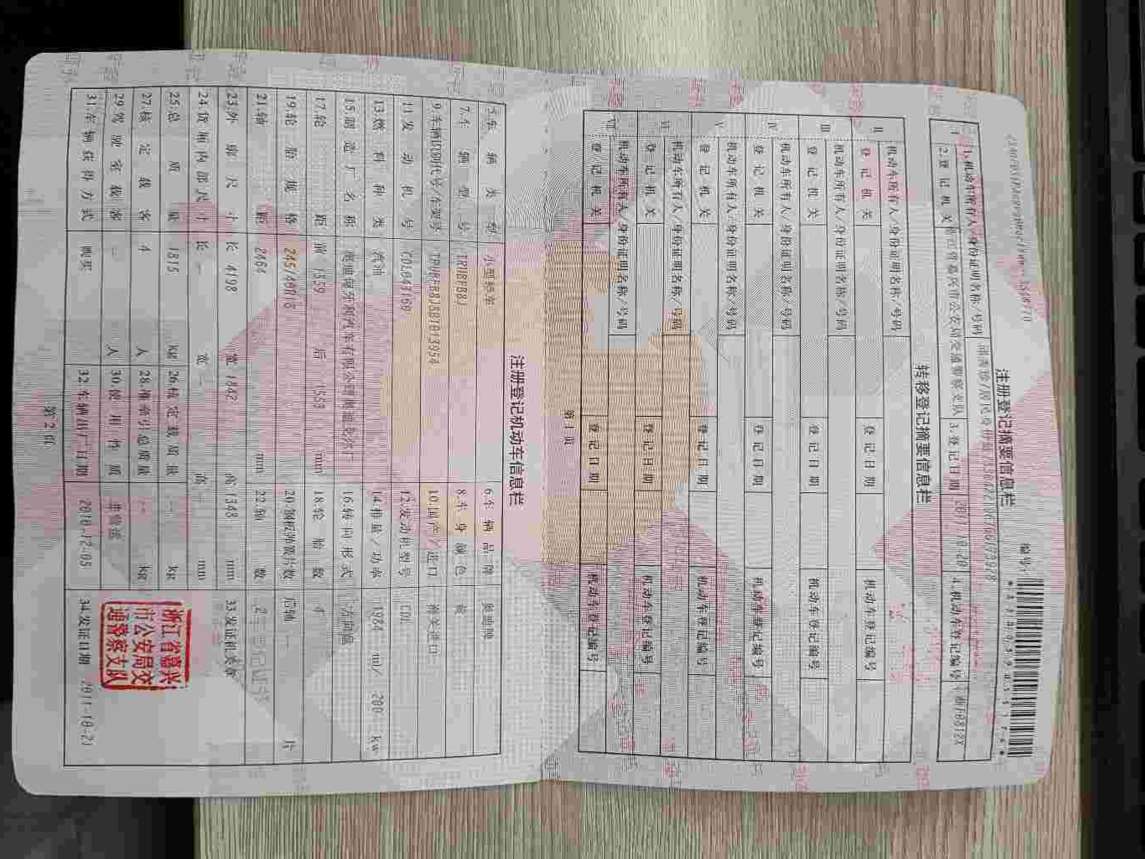 注册登记摘要信息栏
编号:
1.机动车所有人/身份证明名称/号码
居民身份证
2.登记机关 浙江省嘉兴市公安局交通警察支队 3.登记日期 2011-10-20 4.机动车登记编号
转移登记摘要信息栏
II 机动车所有人/身份证明名称/号码
登记机关 登记日期 机动车登记编号
III 机动车所有人/身份证明名称/号码
登记机关 登记日期 机动车登记编号
IV 机动车所有人/身份证明名称/号码
登记机关 登记日期 机动车登记编号
V 机动车所有人/身份证明名称/号码
登记机关 登记日期 机动车登记编号
VI 机动车所有人/身份证明名称/号码
登记机关 登记日期 机动车登记编号
VII 机动车所有人/身份证明名称/号码
登记机关 登记日期 机动车登记编号
第1页
注册登记机动车信息栏
5.车辆类型 小型轿车 6.车辆品牌 奥迪牌
7.车辆型号 TRUBFB8J 8.车身颜色
9.车辆识别代号/车架号 10.国产/进口
11.发动机号 12.发动机型号
13.燃料种类 汽油 14.排量/功率 1984 ml/ kw
15.制造厂名称 16.转向形式 方向盘
17.轮距 前 1559 后 1553 mm 18.轮胎数 4
19.轮胎规格 245/40R18 20.钢板弹簧片数 后轴 片
21.轴距 2464 mm 22.轴数 2
23.外廓尺寸 长 4198 宽 1842 高 1348 mm 33.发证机关章
24.货厢内部尺寸 长 宽 高 mm
25.总质量 1815 kg 26.核定载质量 kg
27.核定载客 4 人 28.准牵引总质量 kg
29.驾驶室载客 人 30.使用性质 非营运
31.车辆获得方式 购买 32.车辆出厂日期 2010-12-05 34.发证日期 2011-10-21
浙江省嘉兴
市公安局交
通警察支队
第2页